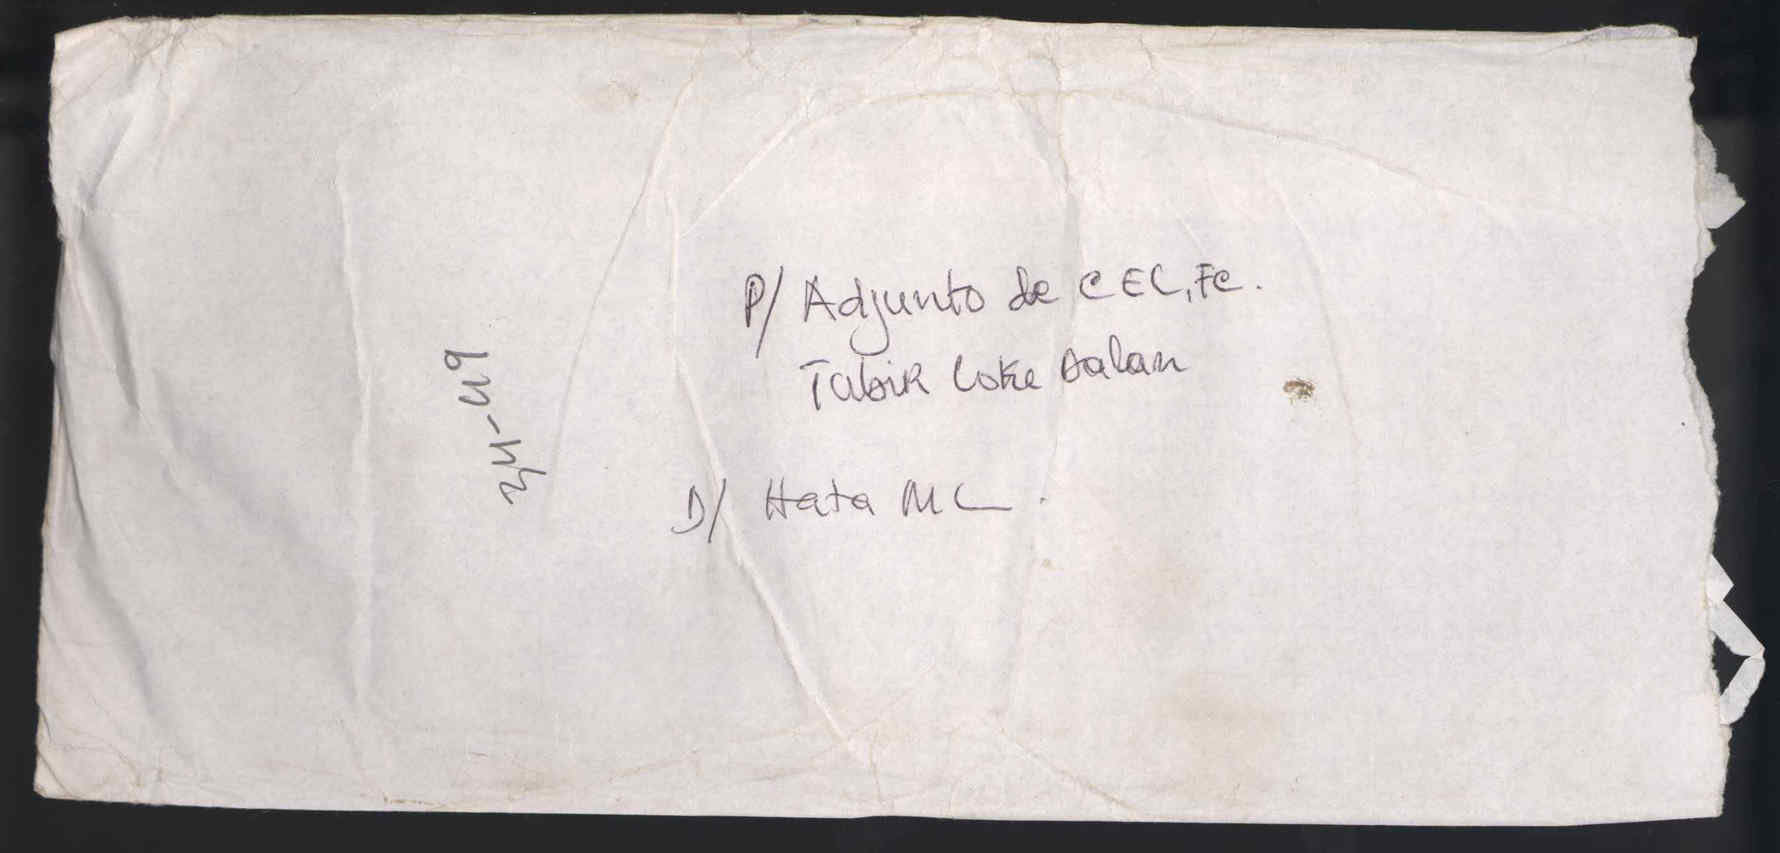 P/ Adjunto de CEL, FC.
Tabik Loke Dalan
D/ Hata MC